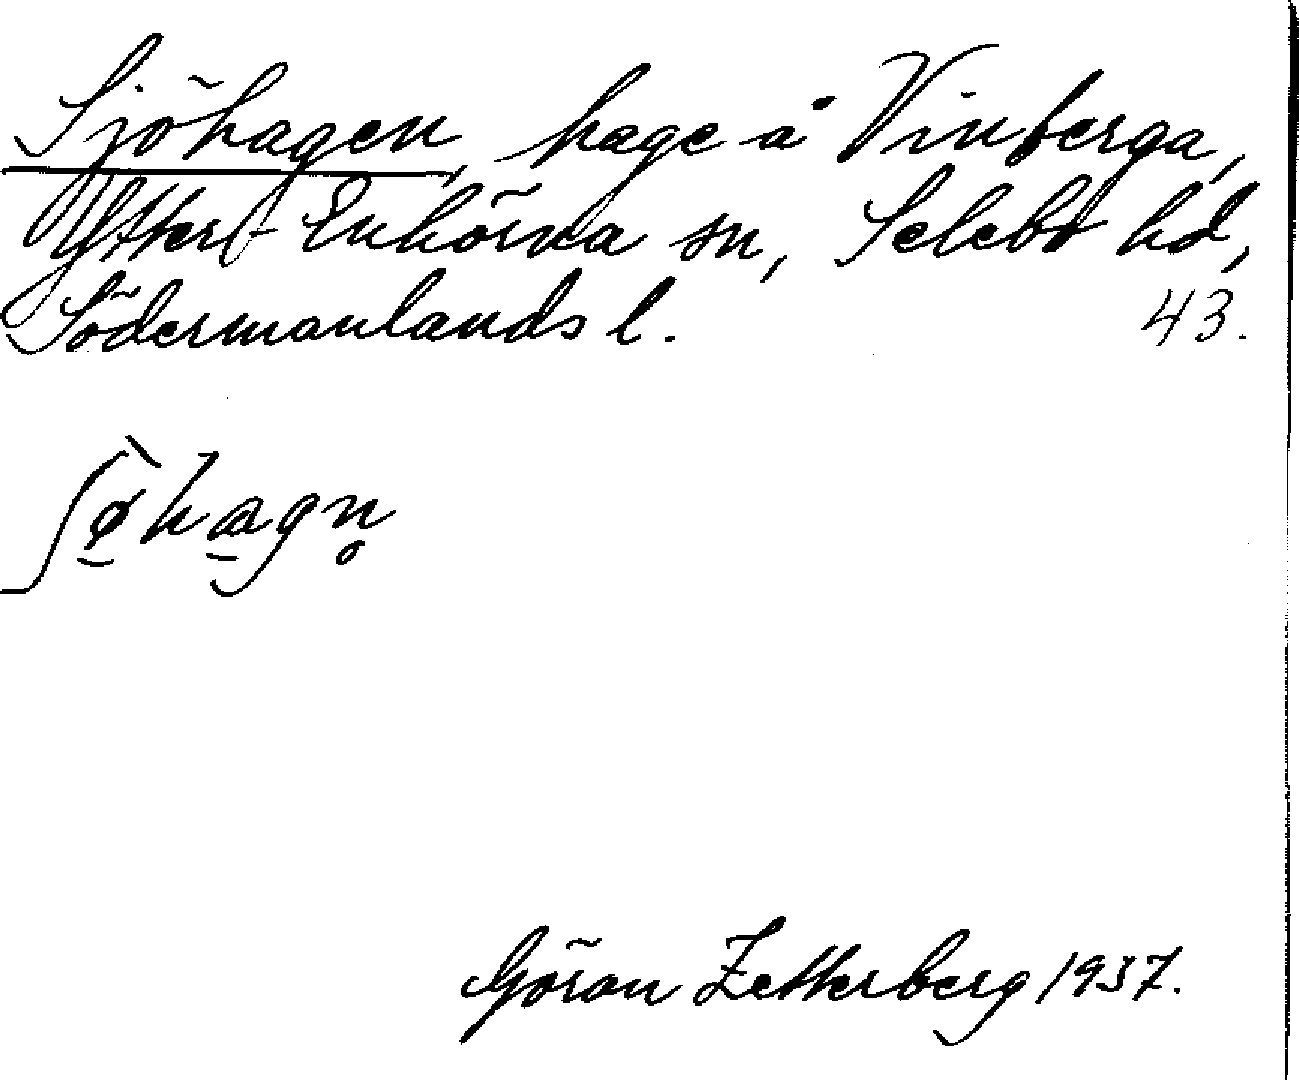 Sjöhagen, hage å Vinberga,
Ytter-Enhörna sn, Selebo hd,
Södermanlands l. 43.
ʃø̀hagn̥
Göran Zetterberg 1937.